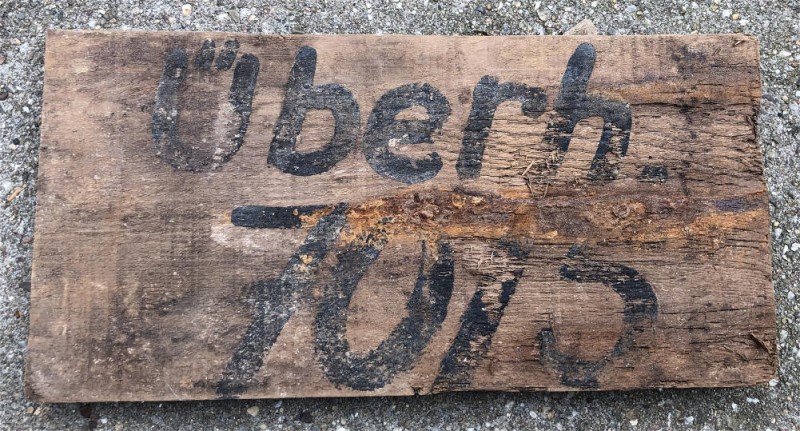 Überh.
70/5